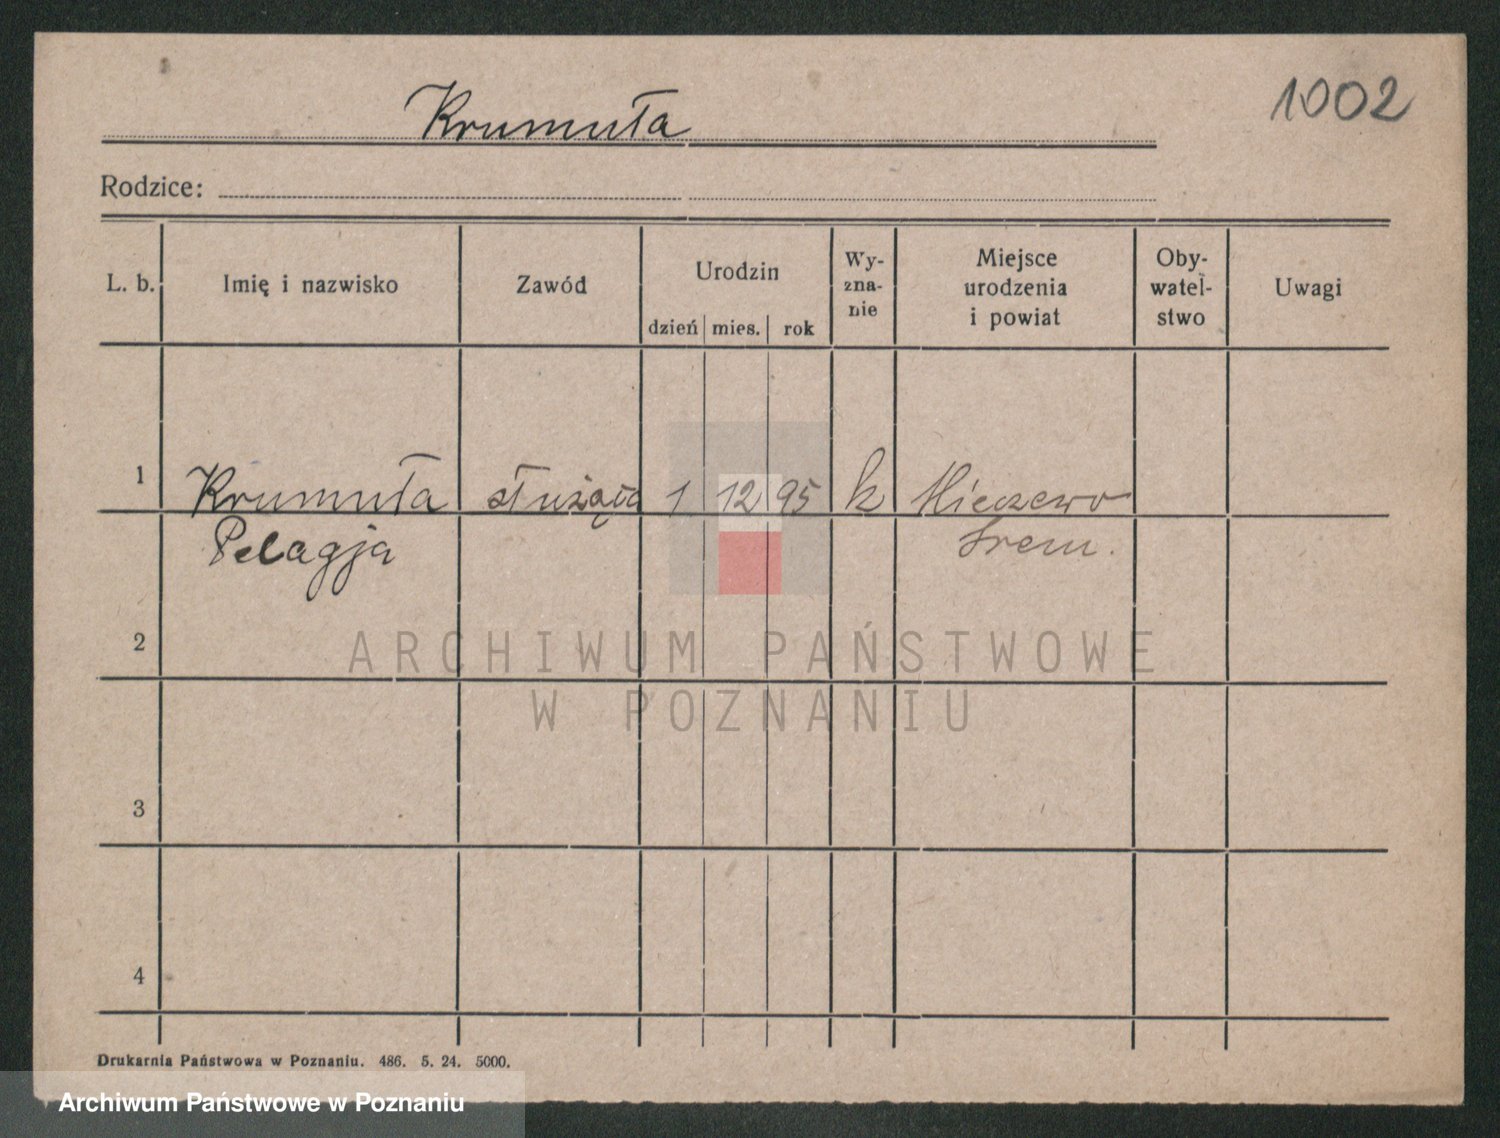 Krumuła
1002
Rodzice:
L. b.
Imię i nazwisko
Zawód
Urodzin
dzień mies. rok
Wy-
zna-
nie
Miejsce
urodzenia
i powiat
Oby-
watel-
stwo
Uwagi
1 Krumuła służąca 1 12 95 k Mieczewo
Pelagja Śrem.
2
3
4
ARCHIWUM PAŃSTWOWE
W POZNANIU
Drukarnia Państwowa w Poznaniu. 486. 5. 24. 5000.
Archiwum Państwowe w Poznaniu